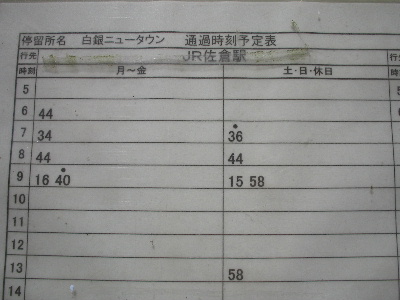 停留所名 白銀ニュータウン 通過時刻予定表
行先 JR佐倉駅 行先
時刻 月～金 土・日・休日 時刻
5
6 44
7 34 36
8 44 44
9 16 40 15 58
10
11
12
13 58
14